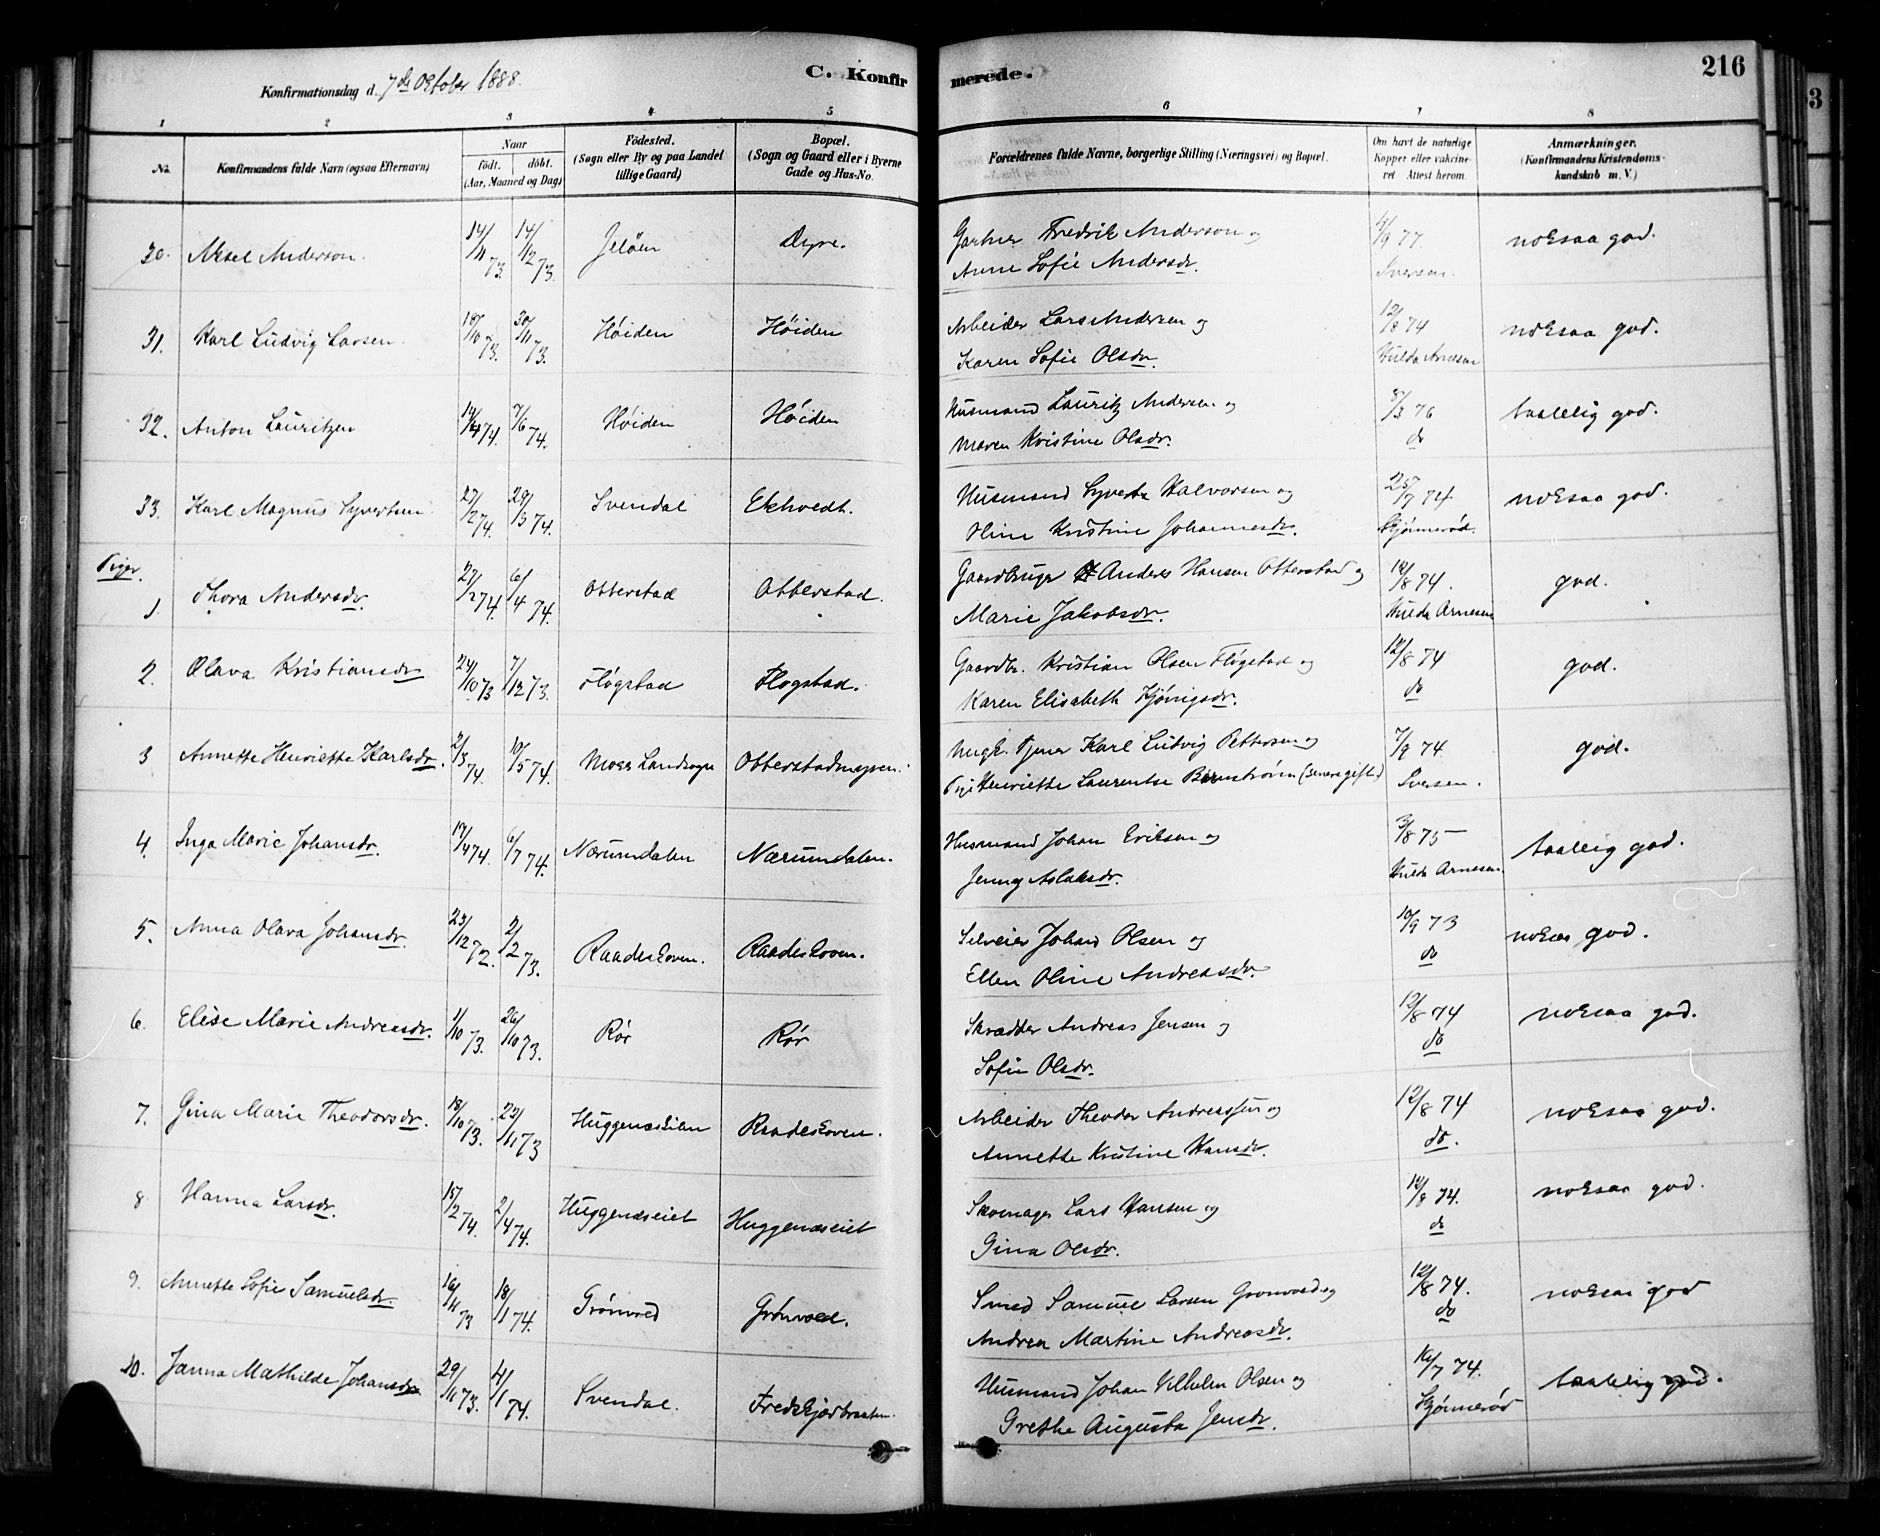 Konfirmationsdag d. 7de October 1888.
C. Konfirmerede.
216
1 2 3 4 5 6 7 8
No.
Konfirmandens fulde Navn (ogsaa Efternavn)
Naar
födt. döbt.
(Aar, Maaned og Dag)
Födested.
(Sogn eller By og paa Landet
tillige Gaard)
Bopæl.
(Sogn og Gaard eller i Byerne
Gade og Hus-No.
Forældrenes fulde Navne, borgerlige Stilling (Næringsvei) og Bopæl.
Om havt de naturlige
Kopper eller vakcine-
ret Attest herom.
Anmærkninger.
(Konfirmandens Kristendoms-
kundskab m. V.)
30. Aksel Anderson. 14/11 73. 14/12 73. Jeløen Dyre. Gartner Fredrik Anderson og
Anne Sofie Andersdr. 4/9 77. Iversen. noksaa god.
31. Karl Ludvig Larsen. 18/10 73. 30/11 73. Høiden Höiden Arbeider Lars Andersen og
Karen Sofie Olsdr. 12/8 74 Hulda Arnesen noksaa god.
32. Anton Lauritzen 14/4 74. 7/6 74. Høiden Høiden Husmand Lauritz Andersen og
Maren Kristine Olsdr. 8/3 76 do taalelig god.
33. Karl Magnus Syvertsen 27/2 74. 29/3 74. Svendal Ekhvedt. Husmand Syvert Halvorsen og
Oline Kristine Johannesdr. 25/7 74 Skjønnerød. noksaa god.
Piger.
1. Thora Andersdr. 27/2 74. 6/4 74. Otterstad Otterstad. Gaardbruger Anders Hansen Otterstad og
Marie Jakobsdr. 12/8 74. Hulda Arnesen god.
2. Olava Kristiansdr 24/10 73 7/12 73. Fløgstad Flogstad. Gaardbr. Kristian Olsen Fløgstad og
Karen Elisabeth Kjönigsdr. 12/8 74 do god.
3 Annette Henriette Karlsdr. 2/3 74. 10/5 74. Moss Landsogn Otterstadmyren. Ungk. Tjener Karl Ludvig Pettersen og
Pige Henriette Laurentse Bernstrøm (senere gifte) 7/9 74 Iversen. god.
4. Inga Marie Johansdr. 17/4 74. 6/7 74. Nærumdalen Nærumdalen. Husmand Johan Eriksen og
Jenny Aslaksdr. 3/8 75 Hulda Arnesen. taalelig god.
5. Anna Olava Johansdr. 23/12 72. 2/2 73. Raadeskoven. Raadeskoven. Selveier Johan Olsen og
Ellen Oline Andreasdr. 10/9 73 do noksaa god.
6. Elise Marie Andreasdr. 1/10 73. 26/10 73. Rør Rør Skrædder Andreas Jensen og
Sofie Olsdr. 12/8 74 do noksaa god.
7. Gina Marie Theodorsdr. 18/10 73. 23/11 73 Huggenæseien Raadeskoven. Arbeider Theodor Andreassen og
Annette Kristine Hansdr. 12/8 74 do. noksaa god.
8 Hanna Larsdr. 15/2 74. 2/4 74. Huggenæseiet Huggenæseiet Skomager Lars Hansen og
Gina Olsdr. 12/8 74. do noksaa god.
9. Annette Sofie Samuelsdr 16/11 73 18/1 74. Grönvold Grönvold. Smed Samuel Larsen Gronvold og
Andrea Martine Andreasdr. 12/8 74. do noksaa god
10. Janna Mathilde Johansdr 29/11 73. 4/1 74. Svendal. Fredskjærbraaten. Husmand Johan Vilhelm Olsen og
Grethe Augusta Jensdr. 14/7 74. Skjønnerød taalelig god.